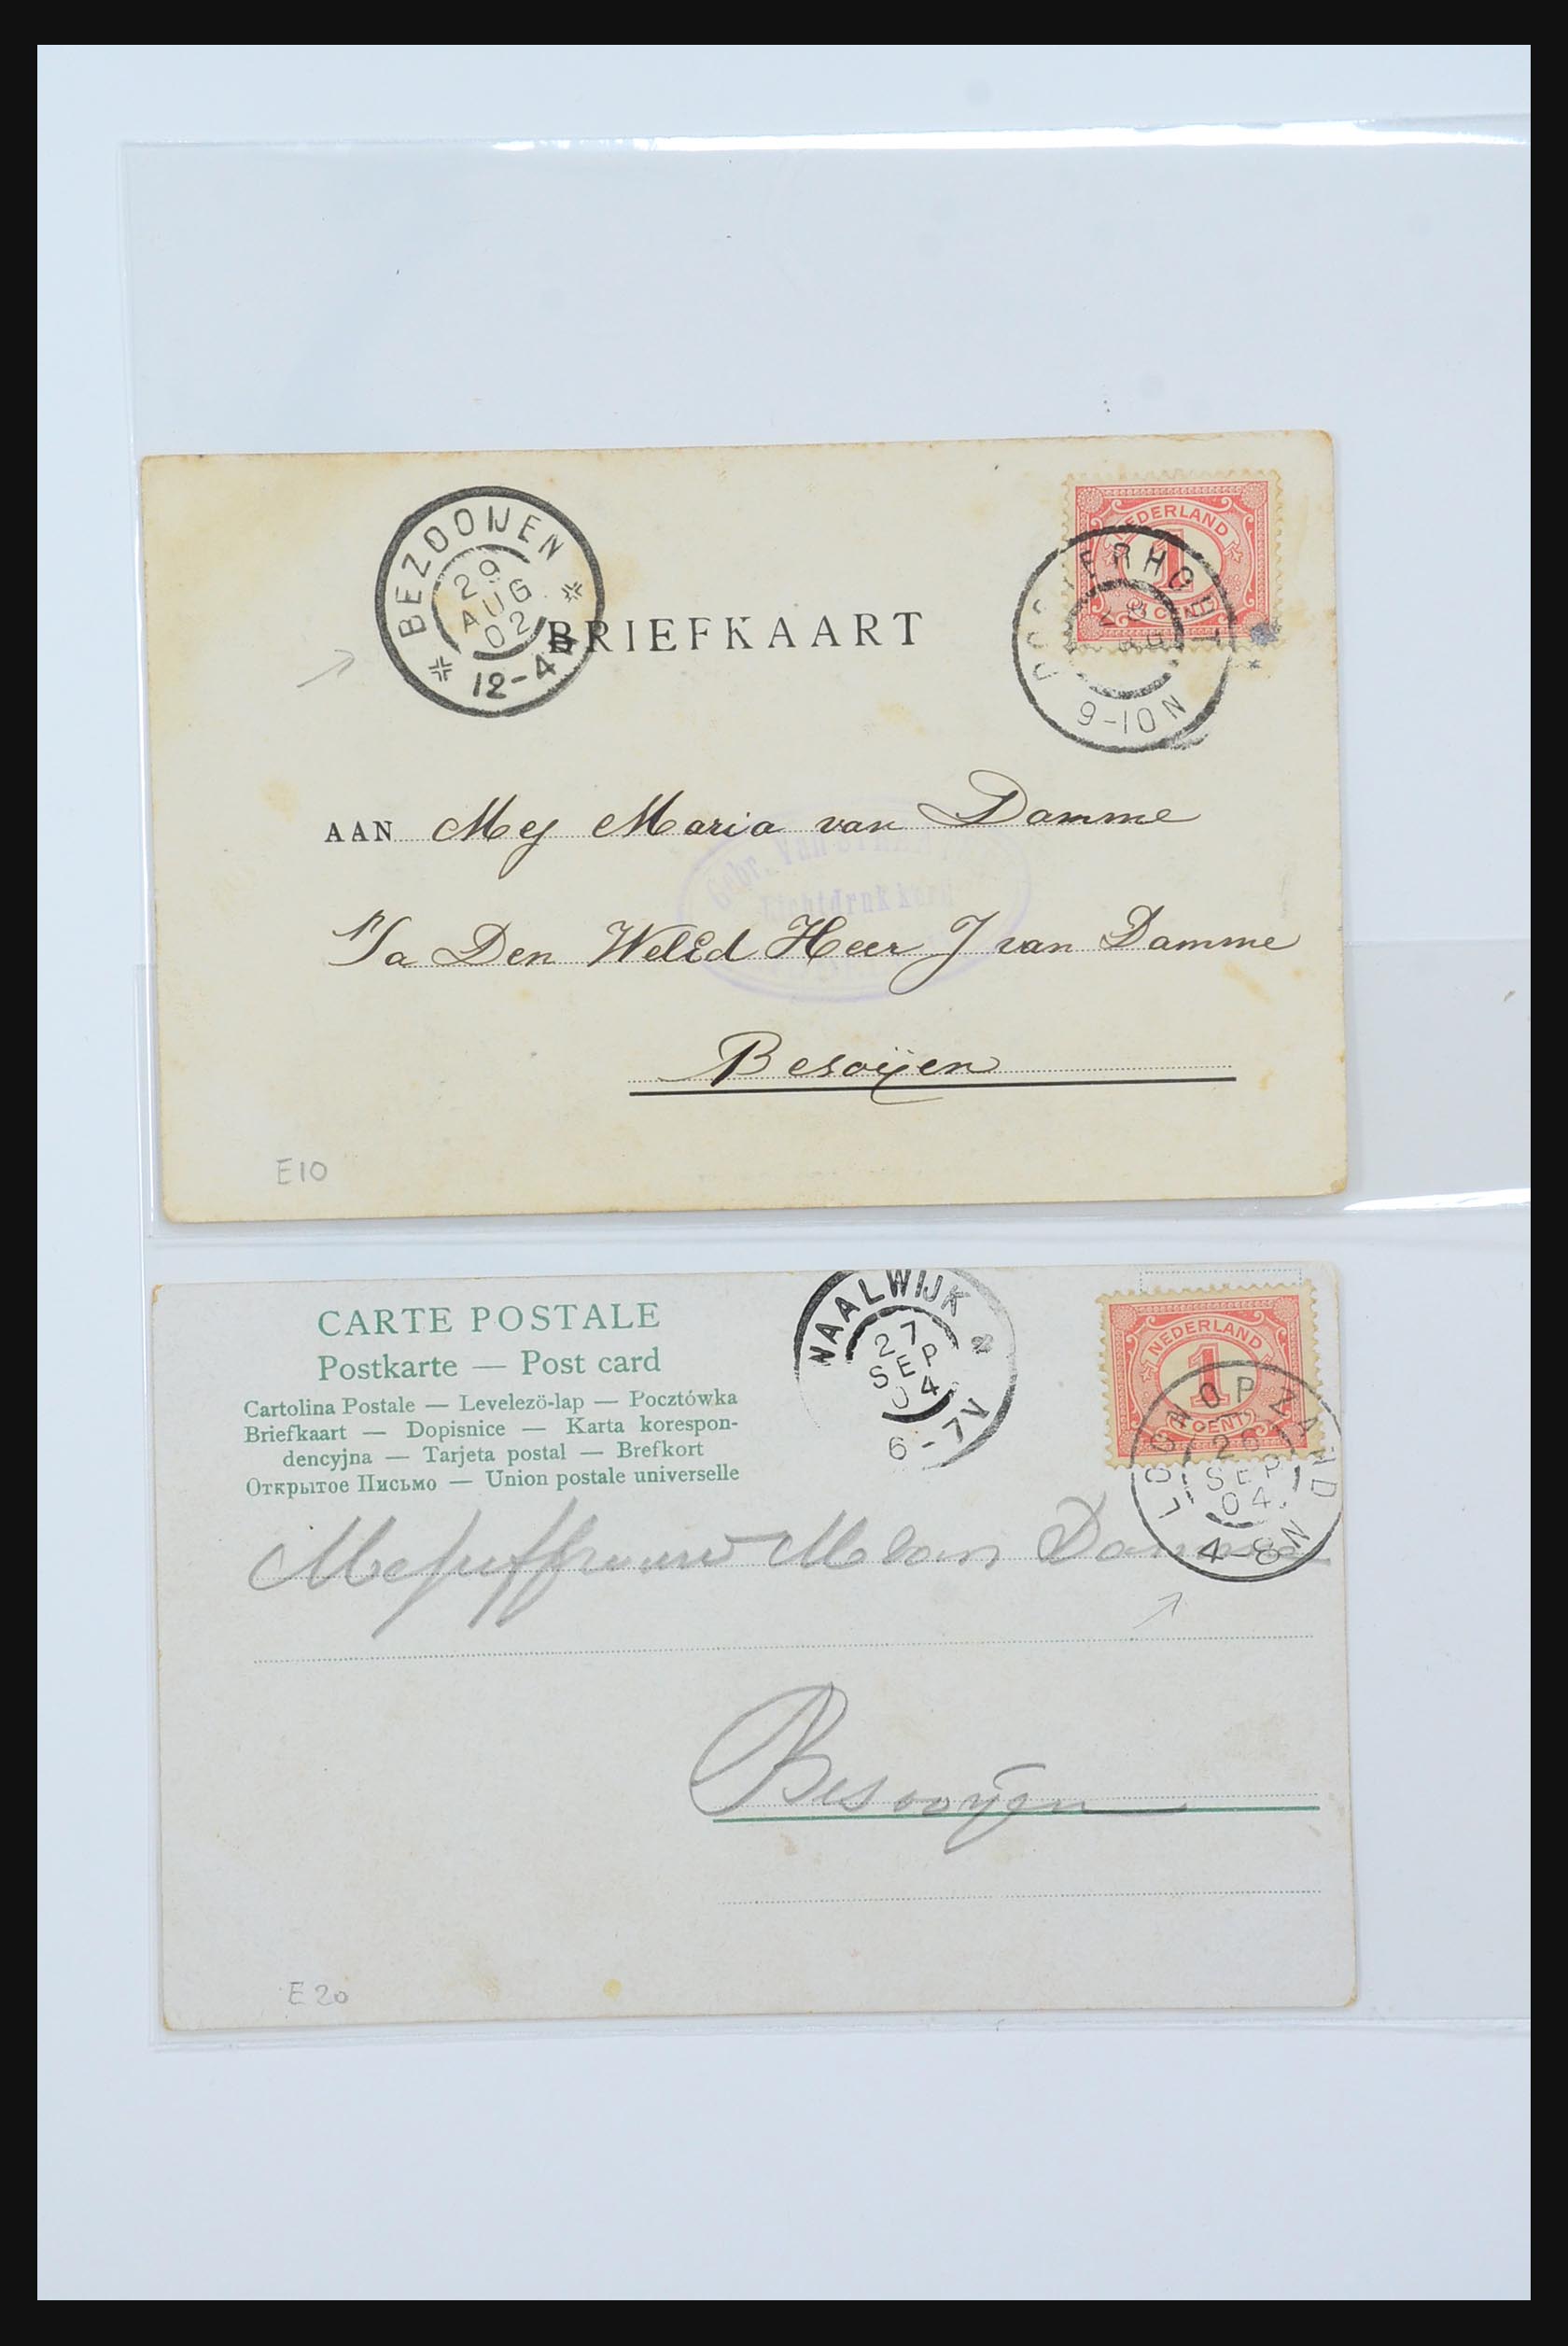 BEZOOIJEN
29
AUG
02
12-4N
BRIEFKAART
NEDERLAND
1
CENT
9-10N
AAN Mej Maria van Damme
Gebr. Van
Lichtdruk
P/a Den WelEd Heer J van Damme
Besoijen
E10
CARTE POSTALE
Postkarte — Post card
Cartolina Postale — Levelezö-lap — Pocztówka
Briefkaart — Dopisnice — Karta korespon-
dencyjna — Tarjeta postal — Brefkort
Открытое Письмо — Union postale universelle
WAALWIJK
27
SEP
04
6-7V
NEDERLAND
1
CENT
LOONOPZAND
26
SEP
04
4-8N
Mejuffrouw M van Damme
Besooijen
E20